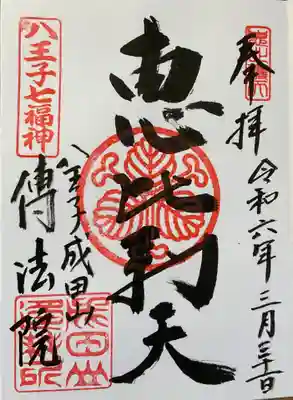 奉拝
令和六年三月三十日
恵比寿天
八王子七福神
八王子成田山
傳法院